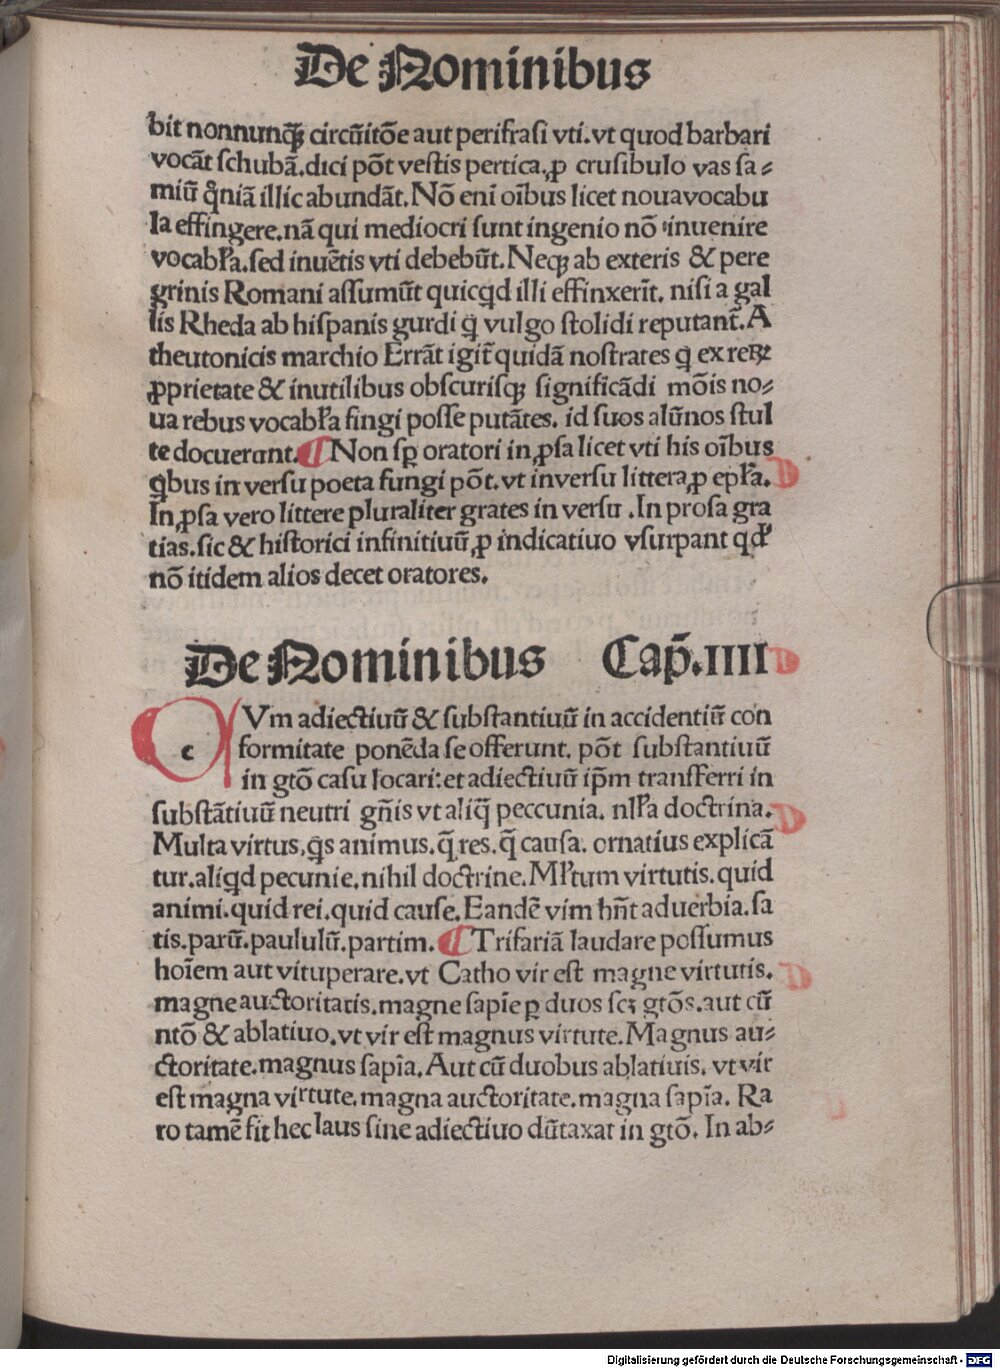 De Nominibus
bit nonnunqꝫ circūitōe aut perifrasi vti. vt quod barbari
vocāt schubā. dici pōt vestis pertica, ꝓ crusibulo vas sa⸗
miū qm̄iā illic abundāt. Nō eni oībus licet noua vocabu
la effingere. nā qui mediocri sunt ingenio nō inuenire
vocabl'a. sed inuētis vti debebūt. Neqꝫ ab exteris & pere
grinis Romani assumūt quicqd illi effinxerīt. nisi a gal
lis Rheda ab hispanis gurdi q̄ vulgo stolidi reputant̄. A
theutonicis marchio Errāt igit̄ quidā nostrates q̄ ex reꝝ
ꝓprietate & inutilibus obscurisqꝫ significādi mōis no⸗
ua rebus vocabl'a fingi posse putātes. id suos alūnos stul
te docuerunt. ¶ Non sꝑ oratori in ꝓsa licet vti his oībus
qbus in versu poeta fungi pōt. vt in versu littera ꝓ epl'a.
In ꝓsa vero littere pluraliter grates in versu. In prosa gra
tias. sic & historici infinitiuū ꝓ indicatiuo vsurpant qd'
nō itidem alios decet oratores.
De Nominibus Cap̄. IIII
c Vm adiectiuū & substantiuū in accidentiū con
formitate ponēda se offerunt. pōt substantiuū
in gtō casu locari: et adiectiuū ip̄m transferri in
substātiuū neutri gn̄is vt aliq̄ peccunia. nl'la doctrina.
Multa virtus, qs animus. q̄ res. q̄ causa. ornatius explicā
tur. aliqd pecunie. nihil doctrine. Ml'tum virtutis. quid
animi. quid rei. quid cause. Eandē vim hn̄t aduerbia. sa
tis. parū. paululū. partim. ¶ Trifariā laudare possumus
hoīem aut vituperare. vt Catho vir est magne virtutis.
magne auctoritatis. magne sapīe ꝑ duos scꝫ gtōs. aut cū
ntō & ablatiuo. vt vir est magnus virtute. Magnus au⸗
ctoritate. magnus sapīa. Aut cū duobus ablatiuis. vt vir
est magna virtute. magna auctoritate. magna sapīa. Ra
ro tamē fit hec laus sine adiectiuo dūtaxat in gtō. In ab⸗
Digitalisierung gefördert durch die Deutsche Forschungsgemeinschaft - DFG